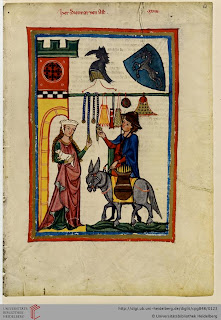 her Dietmar von Ast
UNIVERSITÄTS-
BIBLIOTHEK
HEIDELBERG
http://digi.ub.uni-heidelberg.de/diglit/cpg848/0123
© Universitätsbibliothek Heidelberg